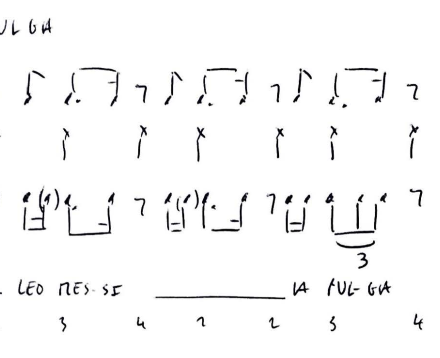 UL GA
3
LEO MES-SI ____________ LA PUL-GA
3 4 1 2 3 4